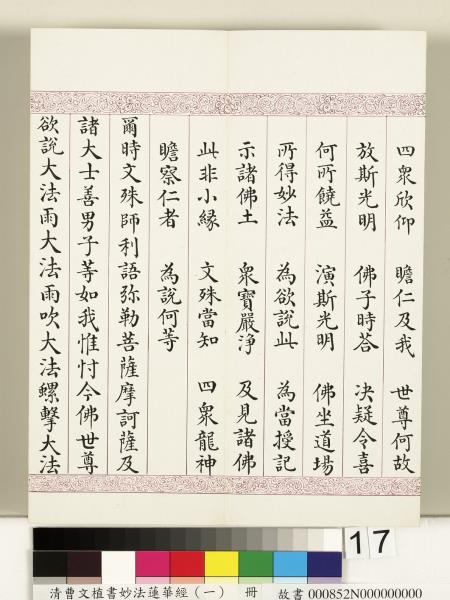 四衆欣仰 瞻仁及我 世尊何故
放斯光明 佛子時荅 决疑令喜
何所饒益 演斯光明 佛坐道場
所得妙法 為欲說此 為當授記
示諸佛土 衆寶嚴淨 及見諸佛
此非小緣 文殊當知 四衆龍神
瞻察仁者 為說何等
爾時文殊師利語弥勒菩薩摩訶薩及
諸大士善男子等如我惟忖今佛世尊
欲說大法雨大法雨吹大法螺擊大法
17
清曹文植書妙法蓮華經(一) 冊 故書 000852N000000000